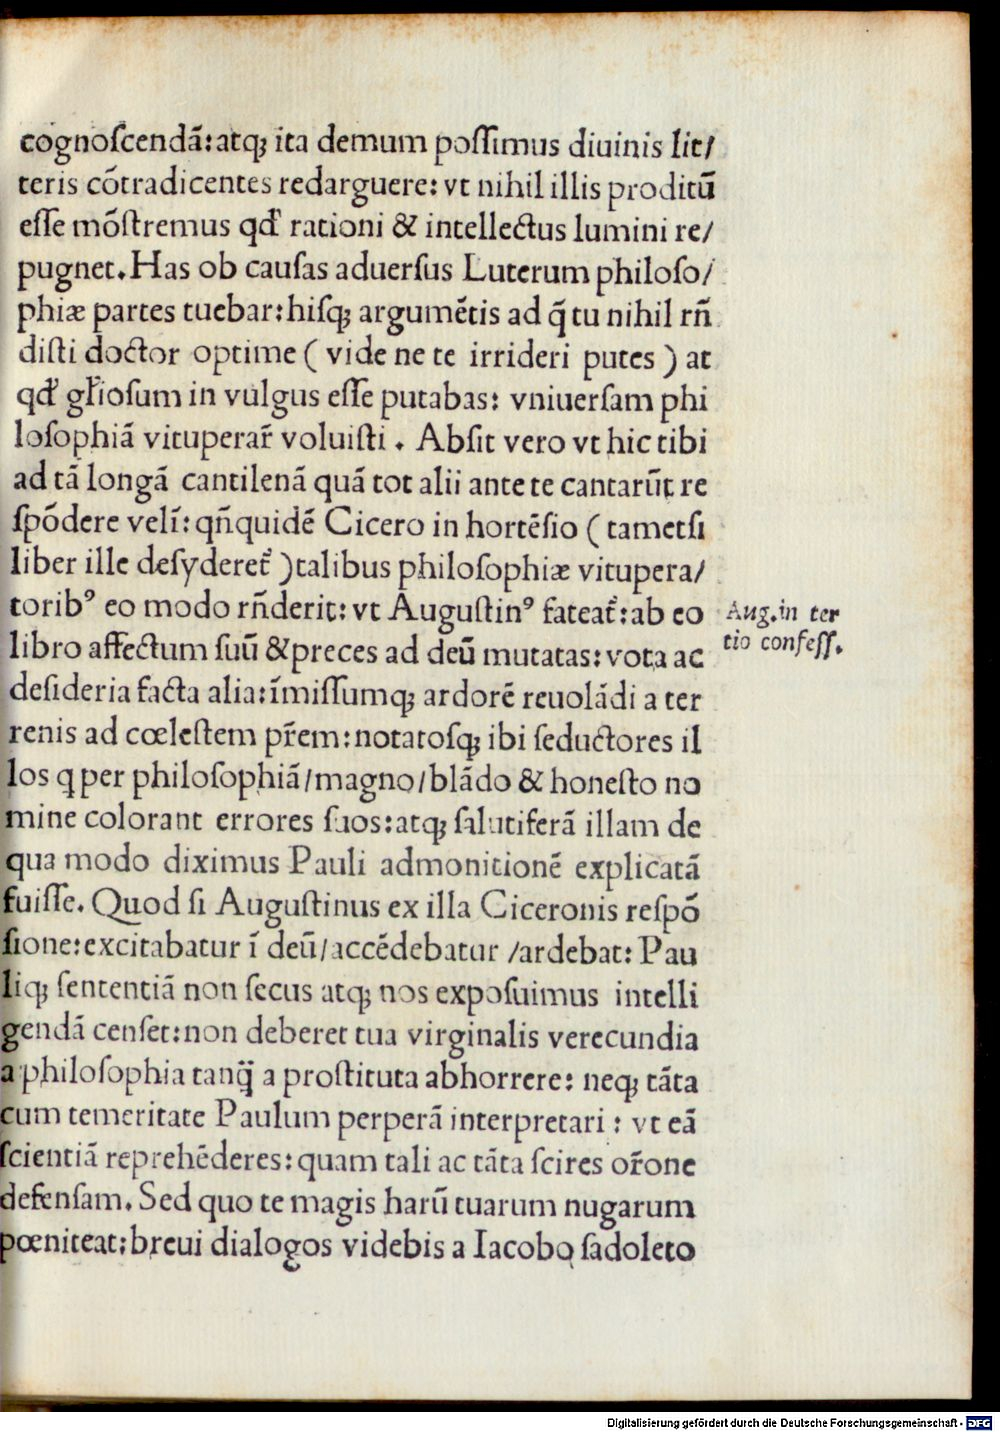 cognoſcendã: atq; ita demum poſſimus diuinis lit/
teris cõtradicentes redarguere: vt nihil illis proditũ
eſſe mõſtremus qđ rationi & intellectus lumini re/
pugnet. Has ob cauſas aduerſus Luterum philoſo/
phiæ partes tuebar: hiſq; argumẽtis ad q̃ tu nihil rñ
diſti doctor optime ( vide ne te irrideri putes ) at
qđ gľioſum in vulgus eſſe putabas: vniuerſam phi
loſophiã vituperar̃ voluiſti . Abſit vero vt hic tibi
ad tã longã cantilenã quã tot alii ante te cantarũt re
ſpõdere velĩ: qñquidẽ Cicero in hortẽſio ( tametſi
liber ille deſyderet̃ ) talibus philoſophiæ vitupera/
toribꝰ eo modo rñderit: vt Auguſtinꝰ fateat̃: ab eo
libro affectum ſuũ & preces ad deũ mutatas: vota ac
deſideria facta alia: ĩmiſſumq; ardorẽ reuolãdi a ter
renis ad cœleſtem pr̃em: notatoſq; ibi ſeductores il
los q per philoſophiã/magno/blãdo & honeſto no
mine colorant errores ſuos: atq; ſalutiferã illam de
qua modo diximus Pauli admonitionẽ explicatã
fuiſſe. Quod ſi Auguſtinus ex illa Ciceronis reſpõ
ſione: excitabatur ĩ deũ/accẽdebatur /ardebat: Pau
liq; ſententiã non ſecus atq; nos expoſuimus intelli
gendã cenſet: non deberet tua virginalis verecundia
a philoſophia tanq̃ a proſtituta abhorrere: neq; tãta
cum temeritate Paulum perperã interpretari : vt eã
ſcientiã reprehẽderes: quam tali ac tãta ſcires or̃one
defenſam. Sed quo te magis harũ tuarum nugarum
pœniteat: breui dialogos videbis a Iacobo ſadoleto
Aug. in ter
tio confeſſ.
Digitalisierung gefördert durch die Deutsche Forschungsgemeinschaft - DFG